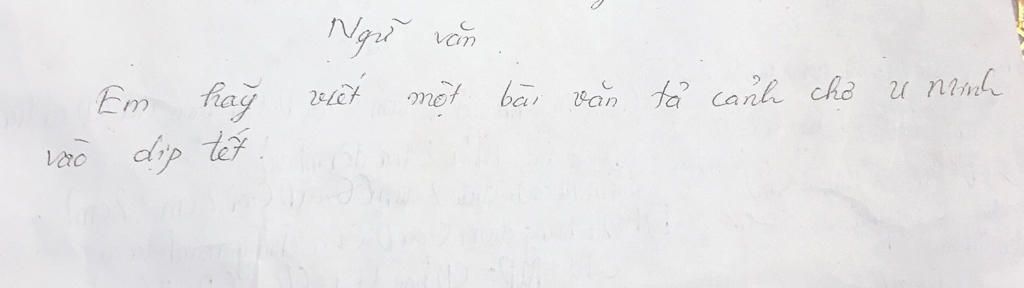 Ngữ văn.
Em hãy viết một bài văn tả cảnh chợ u minh
vào dịp tết.